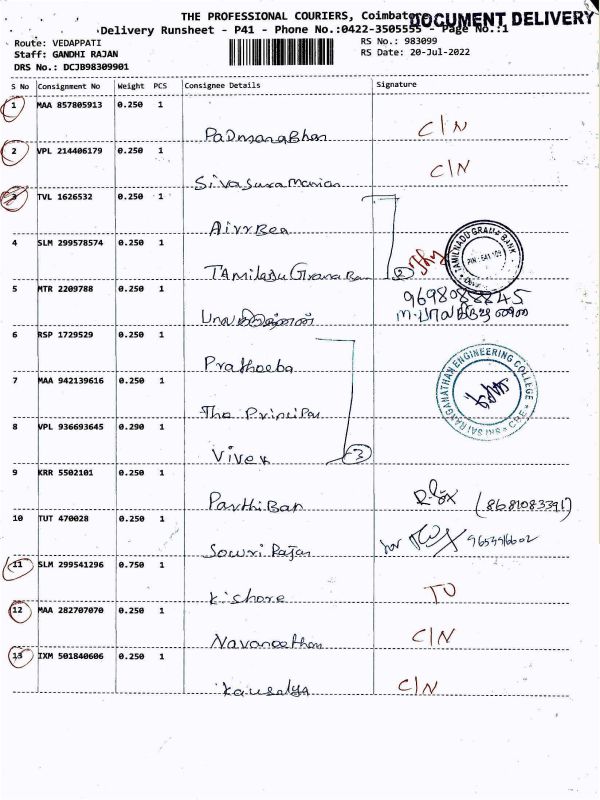 THE PROFESSIONAL COURIERS, Coimbat
DOCUMENT DELIVERY
Delivery Runsheet - P41 - Phone No.:0422-3505555 - Page No.:1
Route: VEDAPPATI RS No.: 983099
Staff: GANDHI RAJAN RS Date: 20-Jul-2022
DRS No.: DCJB98309901
S No Consignment No Weight PCS Consignee Details Signature
1 MAA 857805913 0.250 1
Padmanabhan C/N
2 VPL 214406179 0.250 1
C/N
3 TVL 1626532 0.250 1
4 SLM 299578574 0.250 1
TAMILNADU GRAMA BANK
PIN : 641 109
2
5 MTR 2209788 0.250 1
9698088845
6 RSP 1729529 0.250 1
Pratheeba
7 MAA 942139616 0.250 1
The Principal
SRI RANGANATHAN ENGINEERING COLLEGE
CBE
8 VPL 936693645 0.290 1
Vivek 3
9 KRR 5502101 0.250 1
Parthiban (8681083391)
10 TUT 470028 0.250 1
Sowri Rajan for
11 SLM 299541296 0.750 1
Kishore
12 MAA 282707070 0.250 1
Navaneethan C/N
13 IXM 501840606 0.250 1
Kausalya C/N